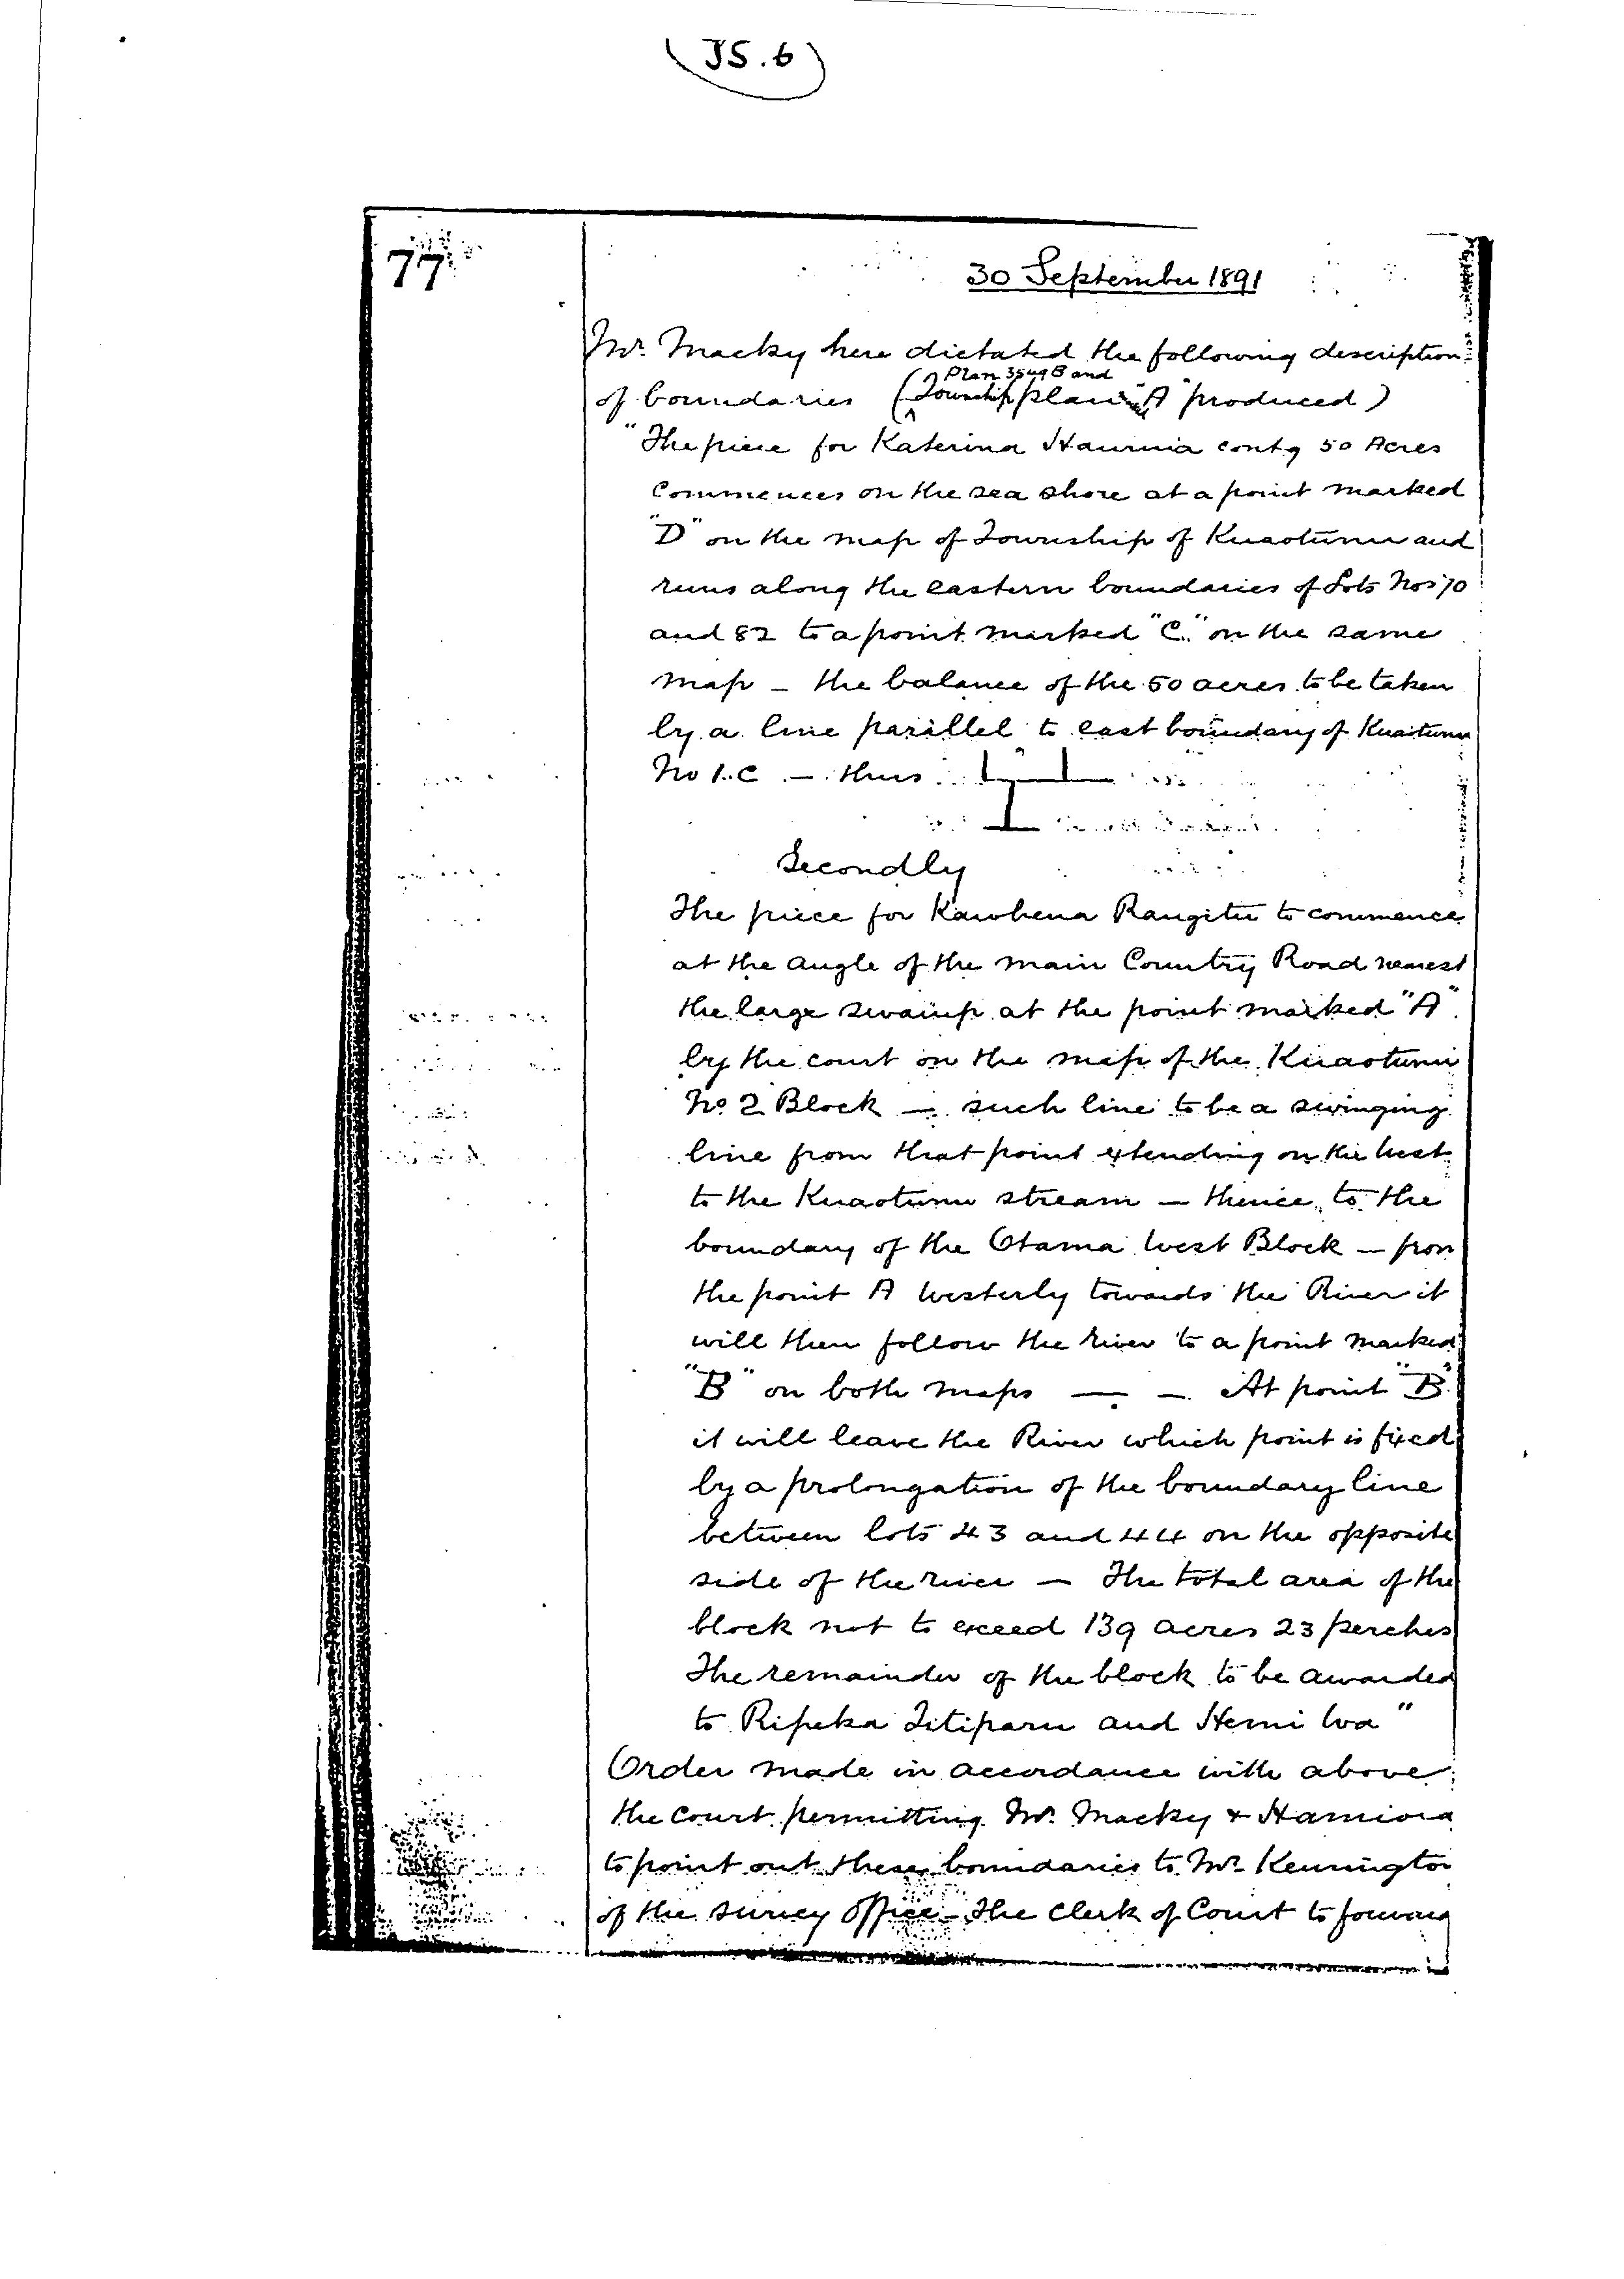 (JS.6)
77
30 September 1891
Mr. Macky here dictated the following description
Plan 3549B and
of boundaries (Township plan "A" produced)
"The piece for Katerina Hauruia contg 50 Acres
Commences on the sea shore at a point marked
"D" on the map of Township of Kuaotunu and
runs along the eastern boundaries of Lots Nos 70
and 82 to a point marked "C." on the same
map - the balance of the 50 acres to be taken
by a line parillel to east boundary of Kuaotunu
No 1.C - thus
Secondly
The piece for Kawhena Rangitu to commence
at the angle of the main Country Road nearest
the large swamp at the point marked "A"
by the court on the map of the Kuaotunu
No 2 Block - such line to be a swinging
line from that point extending on the west
to the Kuaotunu stream - thence to the
boundary of the Otama West Block - from
the point A westerly towards the River it
will then follow the river to a point marked
"B" on both maps — - At point "B"
it will leave the River which point is fixed
by a prolongation of the boundary line
between lots 43 and 44 on the opposite
side of the river - The total area of the
block not to exceed 139 acres 23 perches
The remainder of the block to be awarded
to Ripeka Titiparu and Hemi Wa"
Order made in accordance with above
the Court permitting Mr. Macky & Hamiora
to point out these boundaries to Mr. Kennington
of the survey Office - The Clerk of Court to forward